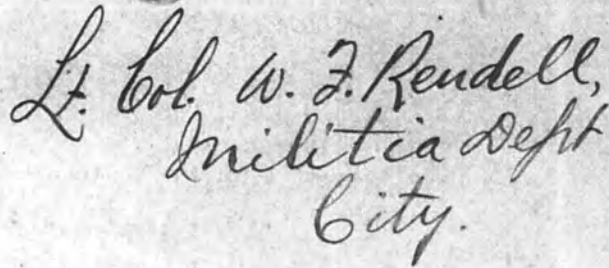 Lt. Col. W. F. Rendell,
Militia Dept
City.